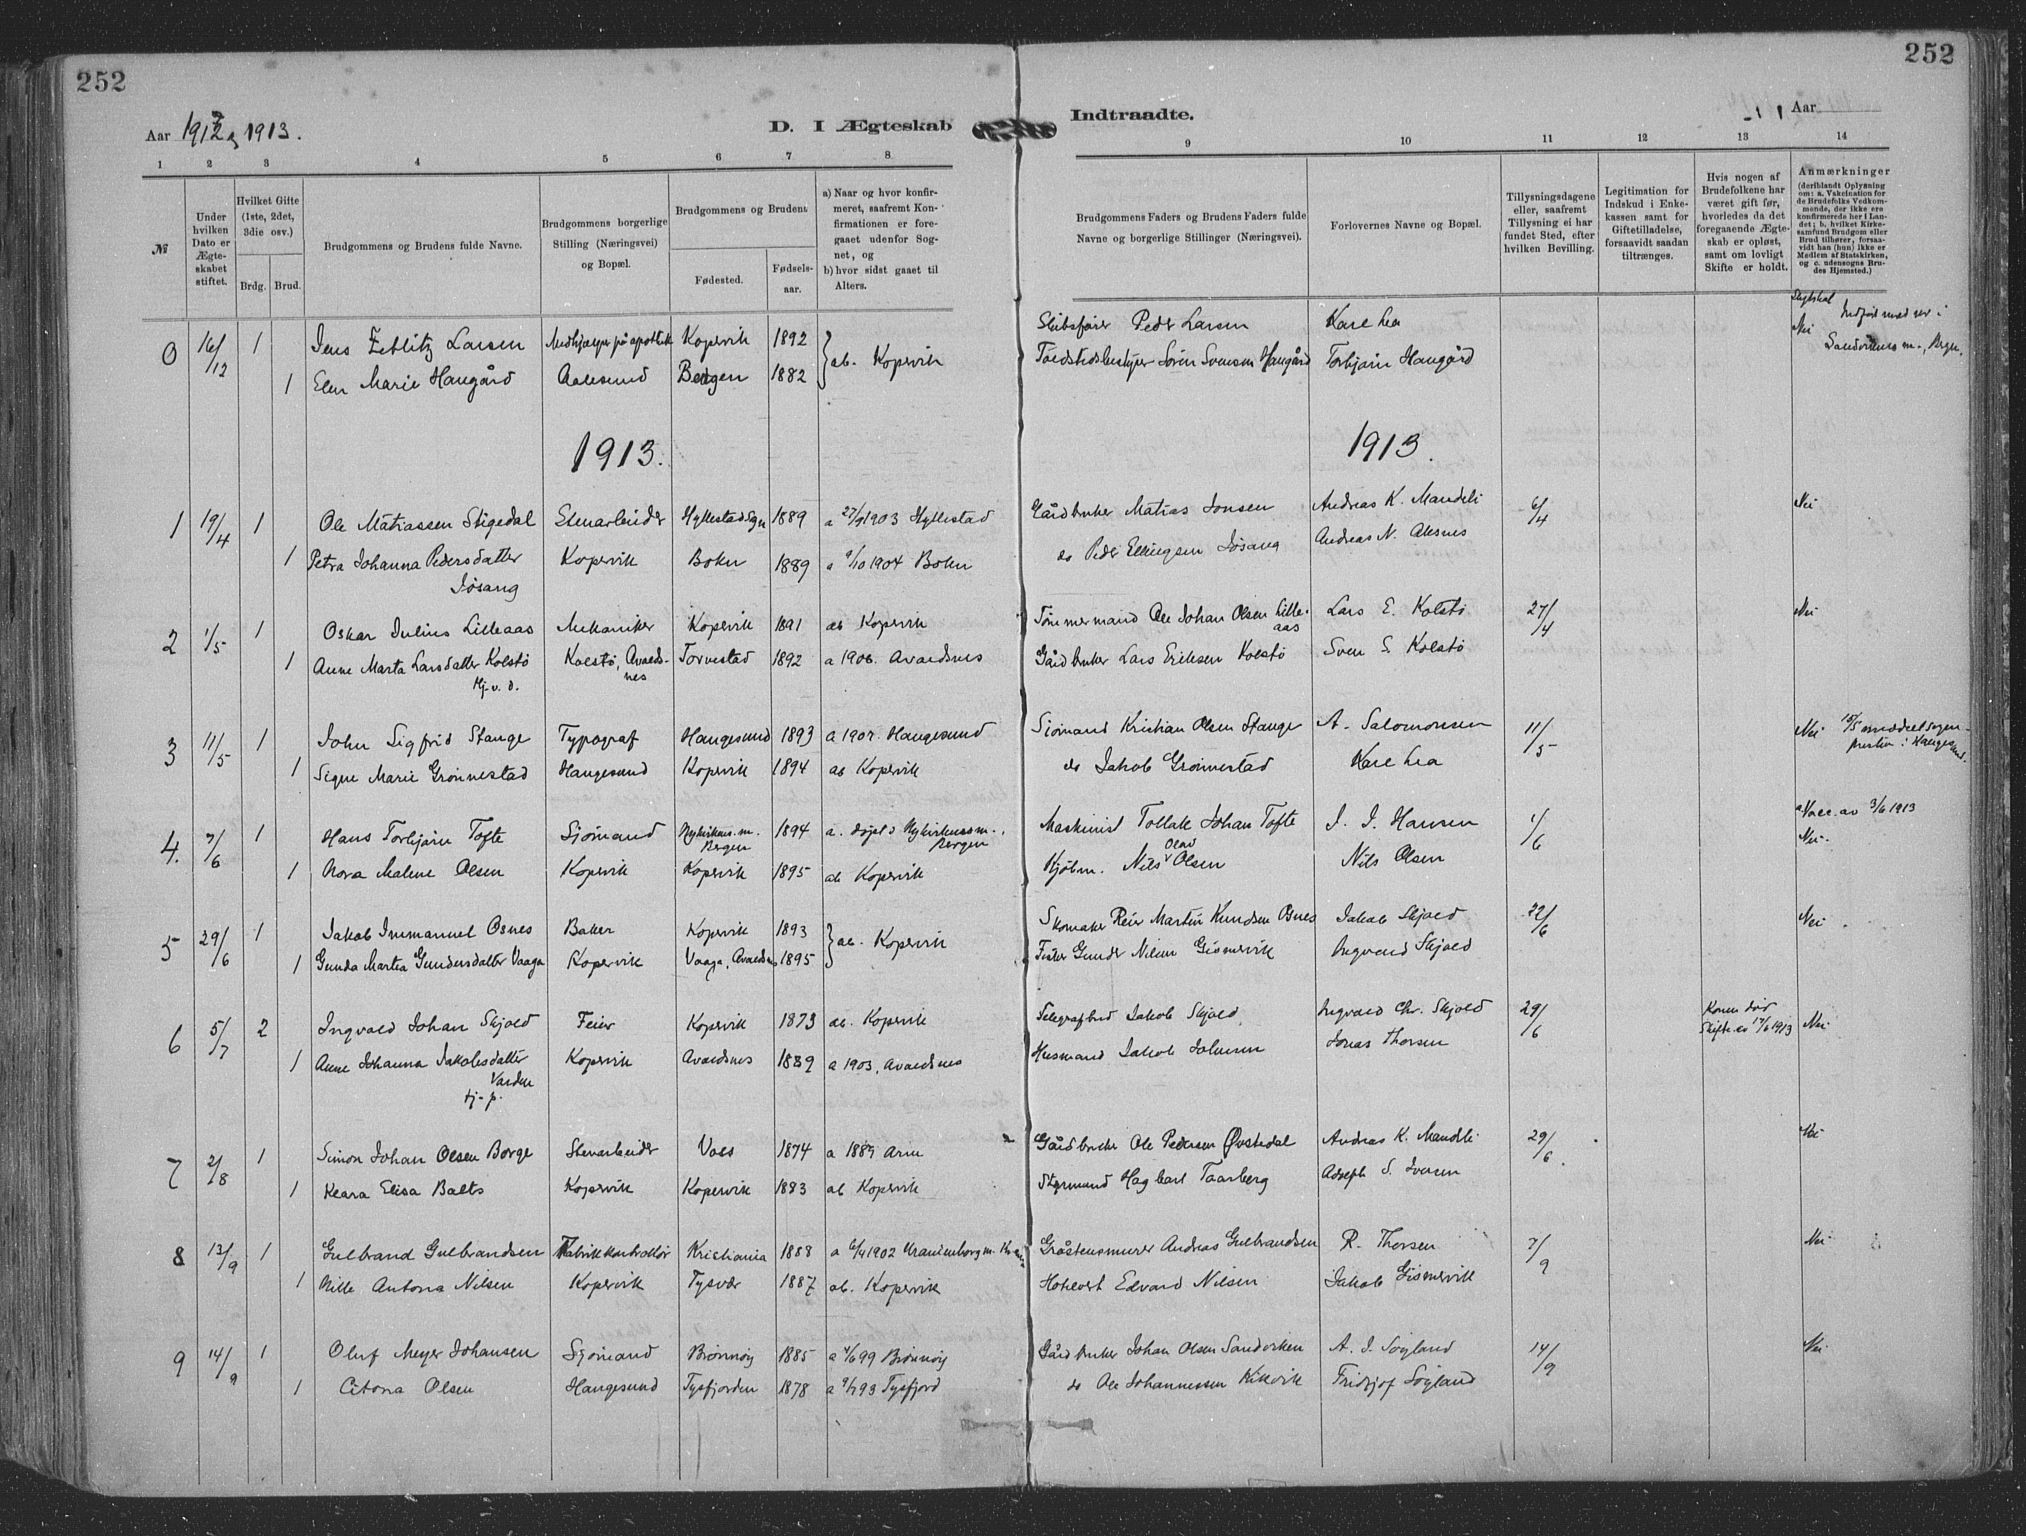 252
252
Aar 1912 og 1913.
D. I Ægteskab
Indtraadte.
Aar
1 2 3 4 5 6 7 8
9 10 11 12 13 14
№
Under hvilken Dato er Ægteskabet stiftet.
Hvilket Gifte (1ste, 2det, 3die osv.)
Brdg. Brud.
Brudgommens og Brudens fulde Navne.
Brudgommens borgerlige Stilling (Næringsvei) og Bopæl.
Brudgommens og Brudens
Fødested.
Fødsels-aar.
a) Naar og hvor konfirmeret, saafremt Konfirmationen er foregaaet udenfor Sognet, og
b) hvor sidst gaaet til Alters.
Brudgommens Faders og Brudens Faders fulde Navne og borgerlige Stillinger (Næringsvei).
Forlovernes Navne og Bopæl.
Tillysningsdagene eller, saafremt Tillysning ei har fundet Sted, efter hvilken Bevilling.
Legitimation for Indskud i Enkekassen samt for Giftetilladelse, forsaavidt saadan tiltrænges.
Hvis nogen af Brudefolkene har været gift før, hvorledes da det foregaaende Ægteskab er opløst, samt om lovligt Skifte er holdt.
Anmærkninger
(deriblandt Oplysning om: a. Vakcination for de Brudefolks Vedkommende, der ikke ere konfirmerede her i Landet; b. hvilket Kirkesamfund Brudgom eller Brud tilhører, forsaavidt han (hun) ikke er Medlem af Statskirken, og c. udensogns Brudes Hjemsted.)
0 16/12 1 Jens Zetlitz Larsen Medhjælper på apothek Kopervik 1892 ab. Kopervik Skibsfører Peder Larsen Kare Lea Nei
1 Elen Marie Haugård Aalesund Bergen 1882 Søren Svensen Haugård Torbjørn Haugård
1913. 1913.
1 19/4 1 Ole Matiassen Stigedal Stenarbeider Hyllestad Sogn 1889 a 27/9 1903 Hyllestad Gårdbruker Matias Jonsen Andreas K. Mandeli 6/4 Nei
1 Petra Johanna Pedersdatter Jøsang Kopervik Bokn 1889 a 9/10 1904 Bokn do Peder Ellingsen Jøsang Andreas N. Aksnes
2 1/5 1 Oskar Julius Lilleaas Mekaniker Kopervik 1891 ab Kopervik Tømmermand Ole Johan Olsen Lilleaas Lars E. Kolstø 27/4 Nei
1 Anne Marta Larsdatter Kolstø Kolstø, Avaldsnes Torvestad 1892 a 1906. Avaldsnes Gårdbruker Lars Eriksen Kolstø Sven S. Kolstø
Hj. v. d.
3 11/5 1 John Sigfrid Stange Typograf Haugesund 1893 a 1907. Haugesund Sjømand Kristian Olsen Stange A. Salomonsen 11/5 Nei 15/5 meddelt sogneprestin i Haugesund.
1 Signe Marie Grønnestad Haugesund Kopervik 1894 ab Kopervik do Jakob Grønnestad Kare Lea
4. 7/6 1 Hans Torbjørn Tofte Sjømand Nykirkens m. Bergen 1894 a. døpt i Nykirkens m., Bergen Maskinist Tollak Johan Tofte J. J. Hansen 1/6 a. Vacc. av 3/6 1913 Nei.
1 Nora Malene Olsen Kopervik Kopervik 1895 ab Kopervik Kjøbm. Nils Olav Olsen Nils Olsen
5 29/6 1 Jakob Immanuel Osnes Baker Kopervik 1893 ab. Kopervik Skomaker Reier Martin Knudsen Osnes Jakob Skjold 22/6 Nei.
1 Gunda Martia Gundersdatter Vaaga Kopervik Vaaga, Avaldsnes 1895 Fisker Gunder Nilsen Gismervik Ingvald Skjold
6 5/7 2 Ingvald Johan Skjold Feier Kopervik 1873 ab. Kopervik Telegrafbud Jakob Skjold Ingvald Chr. Skjold 29/6 Konen død Skifte av 17/6 1913 Nei.
1 Anne Johanna Jakobsdatter Varden Kopervik Avaldsnes 1889 a 1903, Avaldsnes Husmand Jakob Johnsen Jonas Thorsen
7 2/8 1 Simon Johan Olsen Borge Stenarbeider Voss 1874 a 1889 Gårdbruker Ole Pedersen Øvstedal Andreas K. Mandeli 29/6. Nei
1 Klara Elisa Balts Kopervik Kopervik 1883 ab Kopervik Styrmand Hagbart Taarberg Adolph S. Iversen
8 13/9 1 Gulbrand Gulbrandsen Fabrikkontrollør Kristiania 1888 a 6/4 1902 Uranienborg m. Kr.a Gråstensmurer Andreas Gulbrandsen R. Thorsen 7/9 Nei
1 Nille Antona Nilsen Kopervik Tysvær 1887 ab. Kopervik Hotelvert Edvard Nilsen Jakob Gismervik
9 14/9 1 Oluf Meyer Johansen Sjømand Brønnøy 1885 Brønnøy Gårdbruker Johan Olsen A. J. Søyland 14/9 Nei.
1 Citona Olsen Haugesund Tysfjorden 1878 a 9/7 93 Tysfjord do Ole Johannessen Fridtjof Søyland